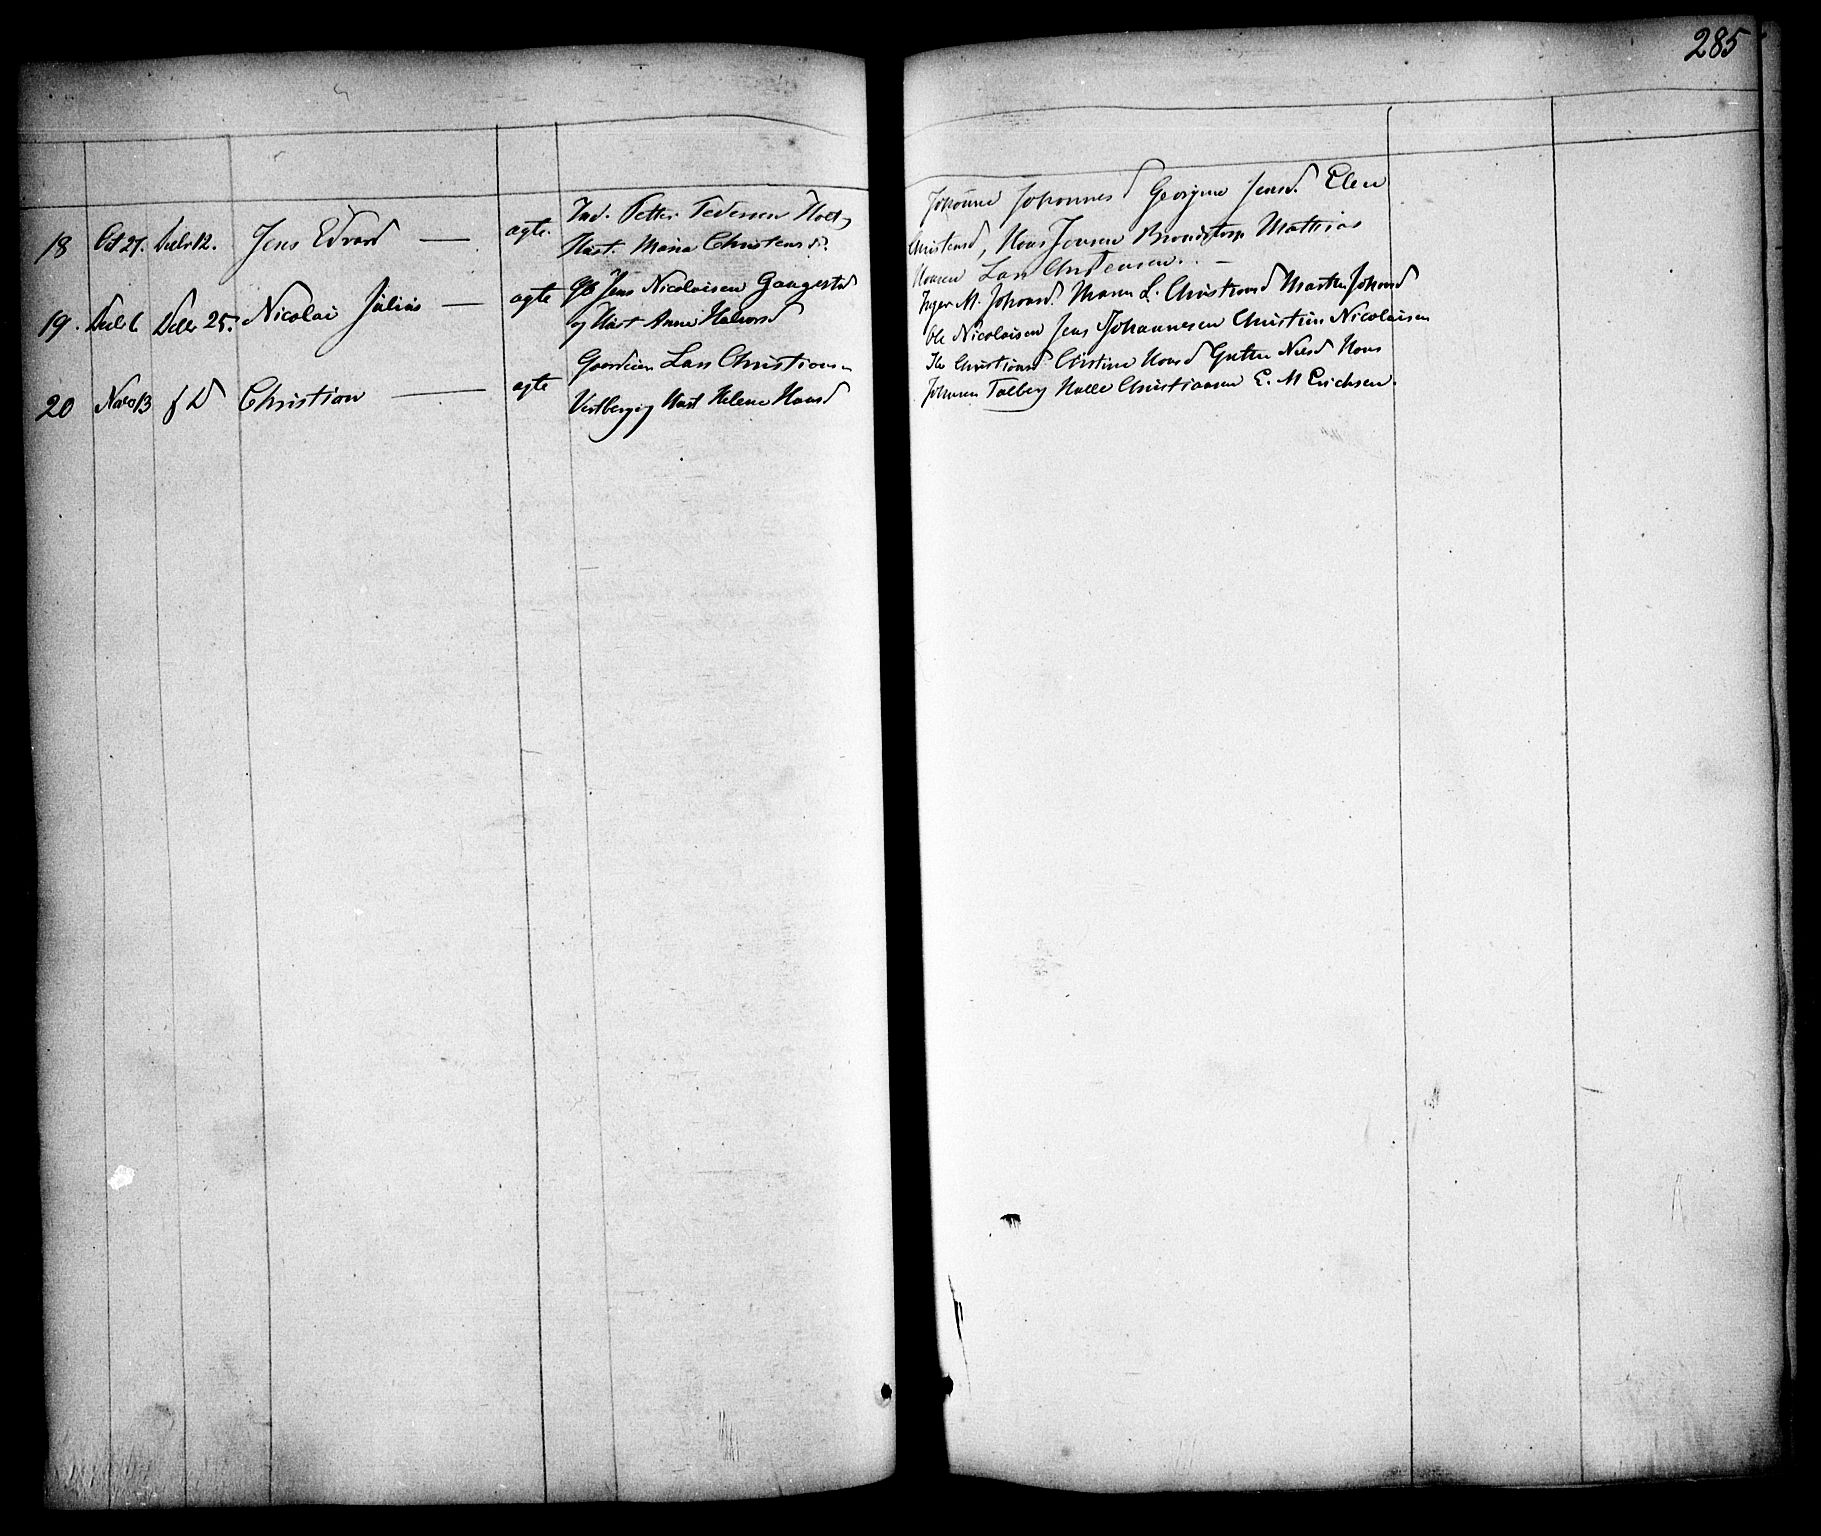 285
Ind. Petter Pedersen Holt
18 Oct 27. Decbr 12. Jens Edvard — agte. Hust. Maria Christensd.
Johanne Johannesd Georgine Jensd. Elen
Christensd, Hans Jensen Brandstorp Mathias
Hansen Lars Christensen. —
Gb Jens Nicolaisen Gaagestad
19. Decbr 6 Decbr 25. Nicolai Julius — agte og Hust Anne Halvorsd
Inger M. Johansd. Maren L. Christiansd Marthe Johansd
Ole Nicolaisen Jens Johannesen Christian Nicolaisen
Gaardeier Lars Christiansen
20 Novb 13 f D Christian — agte Vestberg og Hust Helene Hansd
Christiansd Christine Hansd Nielsd Hans
Johansen Talberg Halle Christiansen E. M Erichsen.